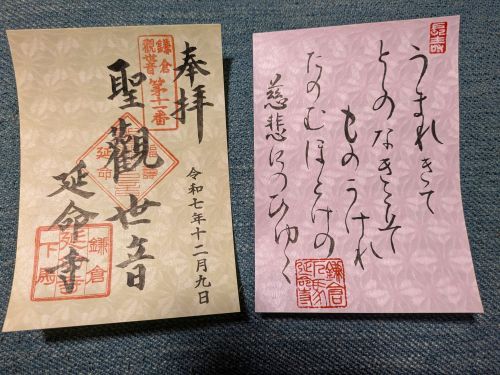 奉拝
鎌倉
觀世音
第十一番
聖觀世音
延命寺
令和七年十二月九日
鎌倉
延命寺
下馬
うまれきて
ものうけれ
たのむほとけの
慈悲にのひゆく
鎌倉
下馬
延命寺